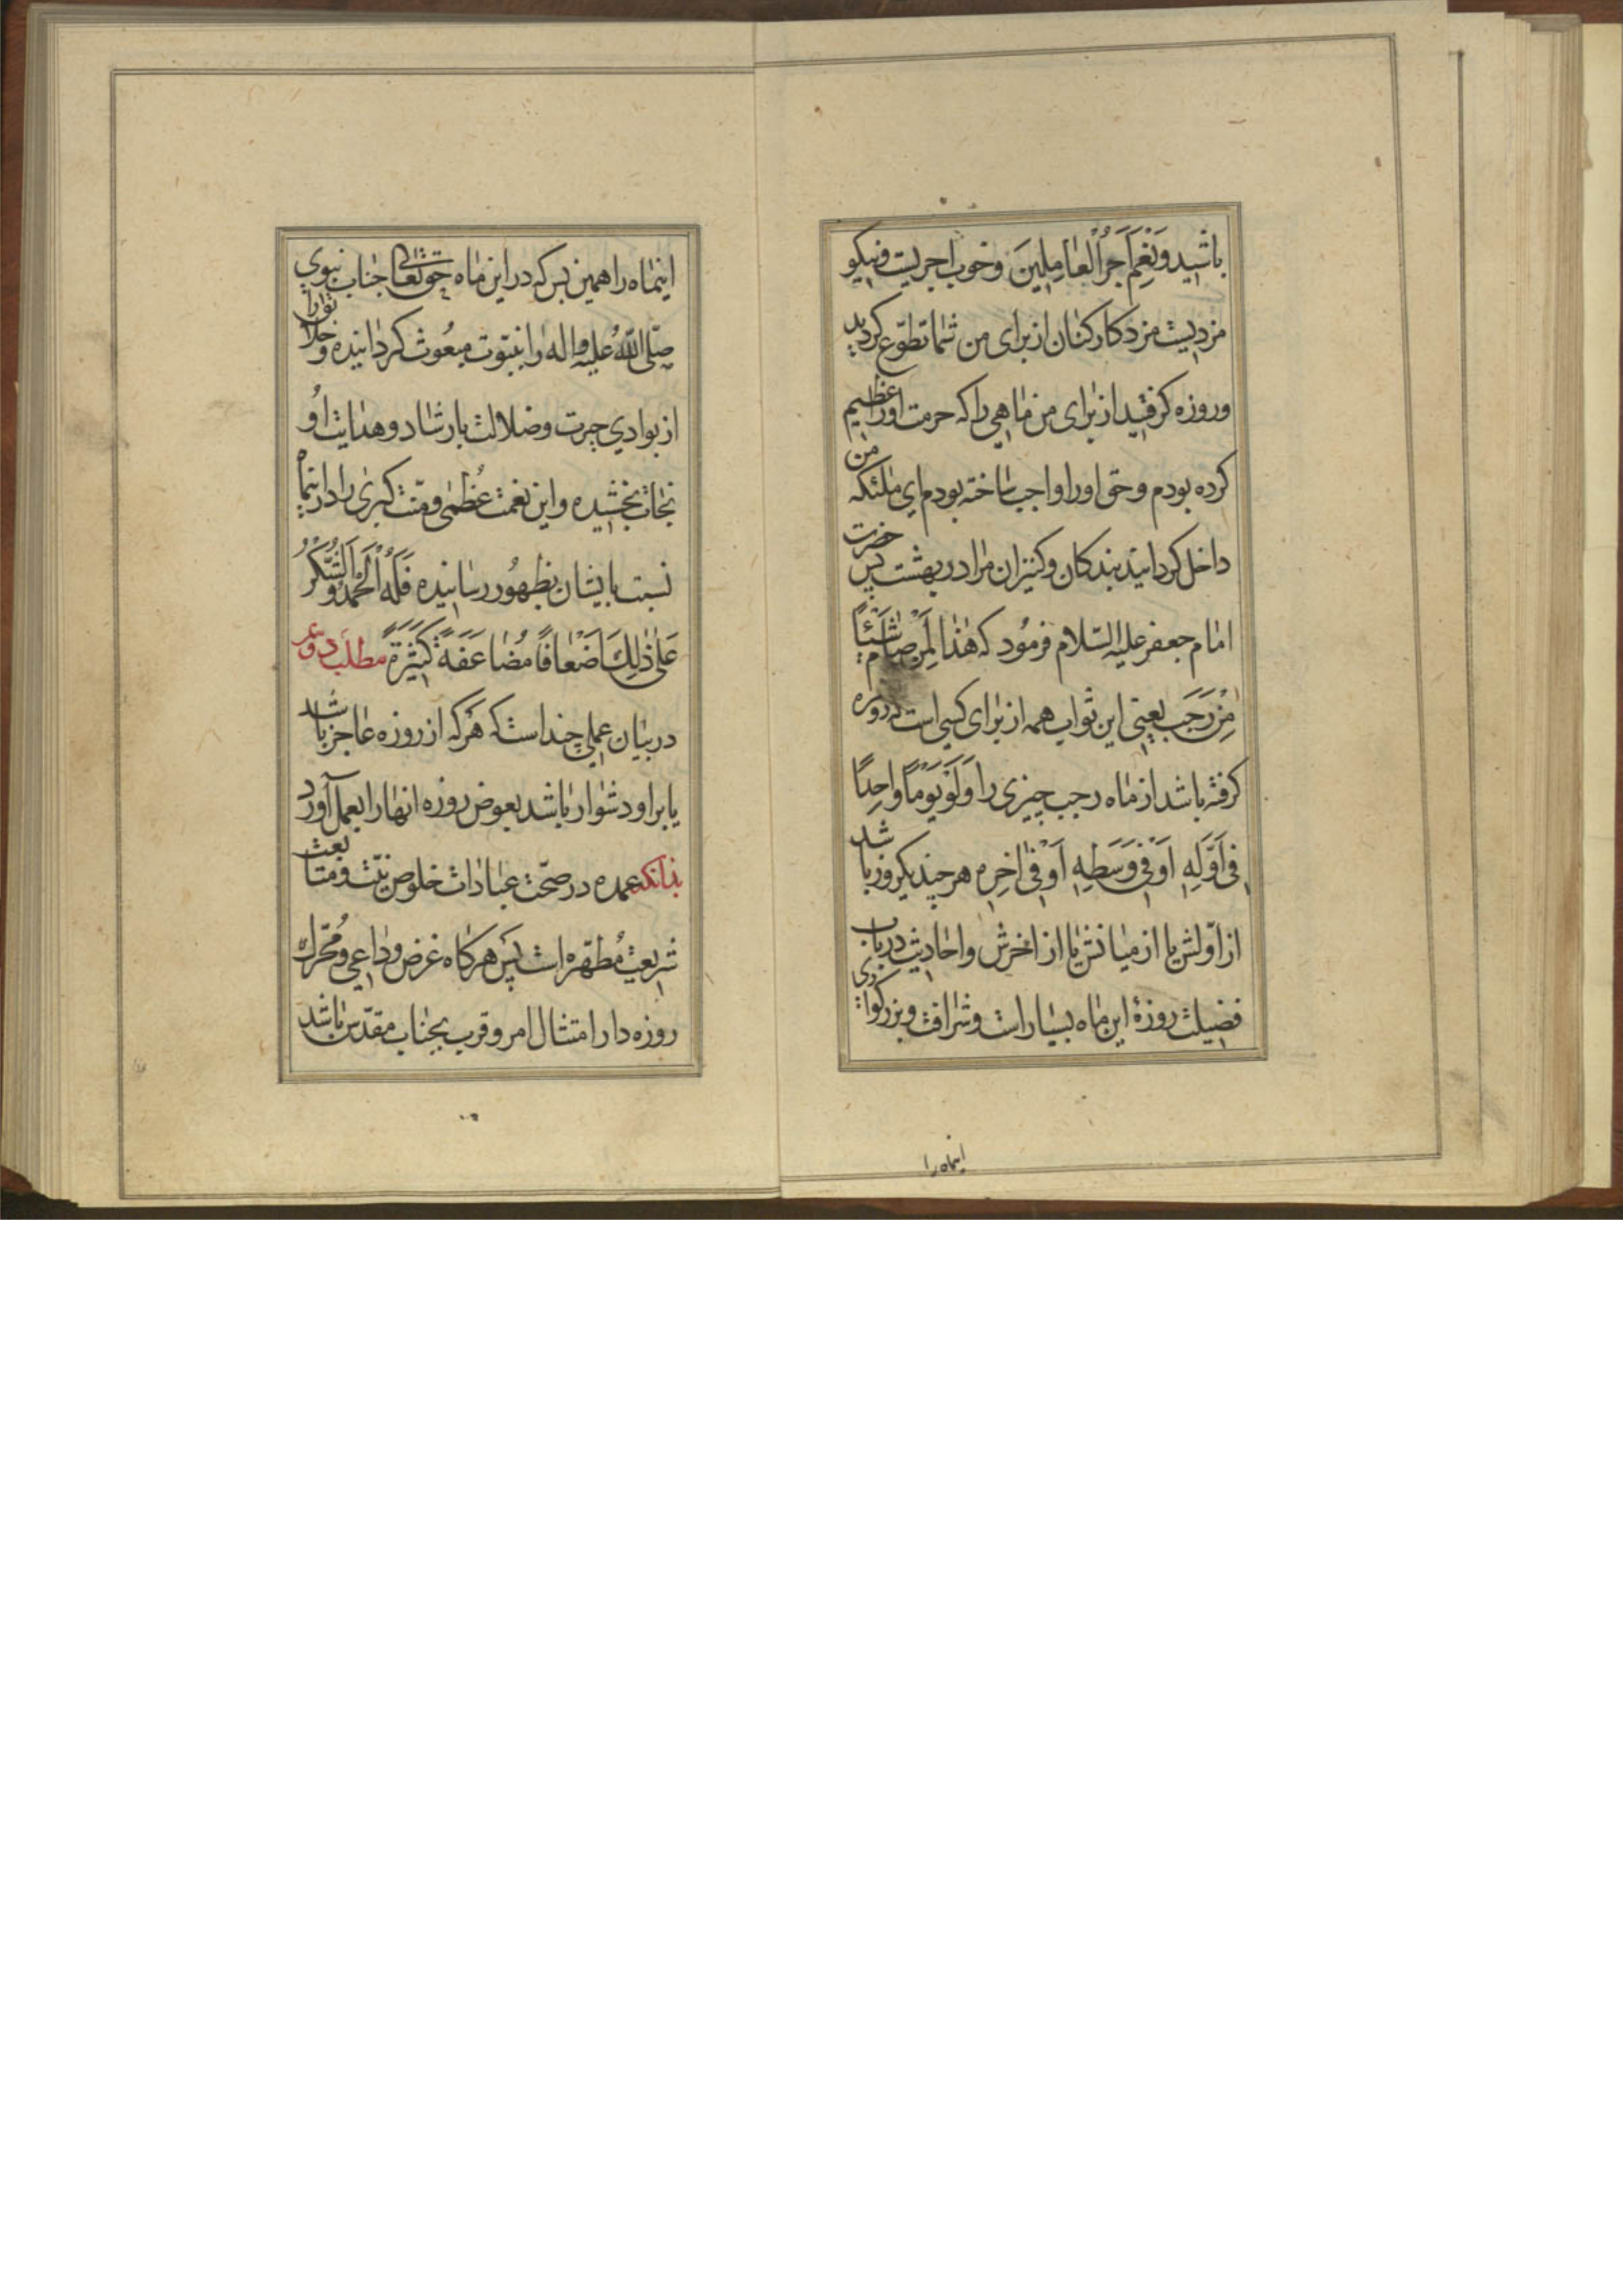 باشید وَنِعْمَ اَجْرُ الْعٰامِلینَ وخوب اجریست ونیکو
مزدیست مزد کارکنان از برای من شما تطوّع کردید
وروزه کرفتید از برای من ماهی را که حرمت اورا عظیم
کرده بودم وحق اورا واجب ساخته بودم ای ملئکه من
داخل کردانید بندکان وکنیزان مرا در بهشت پس حضرت
امام جعفر علیه السّلام فرمُود که هٰذا لِمَنْ صٰامَ شَیْئاً
مِنْ رَجَب یعنی این ثواب همه از برای کسی است که روزه
کرفته باشد از ماه رجب چیزی را وَلَوْ یَوْماً واحِداً
فی اَوَّلِهِ اَوْ فی وَسَطِهِ اَوْ فی اٰخِرِهِ هر چند یکروز باشد
از اوّلش یا از میانش یا از اخرش واحادیث در باب
فضیلت روزهٔ این ماه بسیار است وشرافت وبزرکواری
اینماه را
اینماه را همین بس که در این ماه حق تعالی جناب نبوی
صلّی اللّٰهُ علیه واله را بنبوّت مبعُوث کردانیده وخلایق را
از بوادی حیرت وضلالت بارشاد وهدایت اُو
نجات بخشیده واین نعمت عُظمٰی ومنّت کبرٰی را در اینماه
نسبت بایشان بظهُور رسانیده فَلَهُ الْحَمْدُ وَالشُّکْرُ
عَلیٰ ذٰلِکَ اَضْعٰافاً مُضٰاعَفَةً کَثیرَةً مطلب دویم
در بیان عملی چند است که هَر که از روزه عاجز باشد
یا بر او دشوار باشد بعوض روزه انها را بعمل آورد
بدانکه عمده در صحّت عبادات خلوص نیّت ومتابعت
شریعت مُطهّره است پَس هر کاه غرض وداعی ومُحرّک
روزه دار امتثال امر وقرب بجناب مقدّس باشد